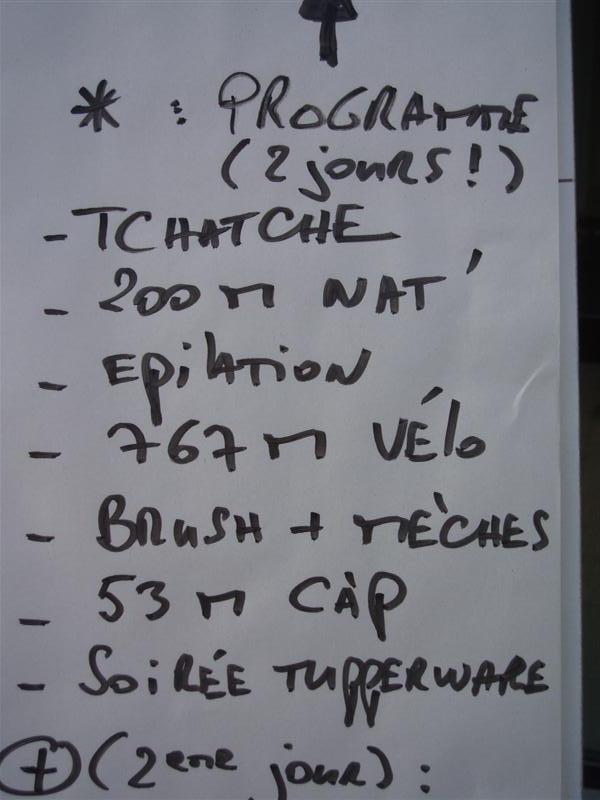 * : PROGRAMME
(2 jours!)
- TCHATCHE
- 200 m NAT'
- Epilation
- 767 m VÉlo
- BRUSH + MÈCHES
- 53 m CÀP
- SOIRÉE TUPPERWARE
+ (2eme jour) :